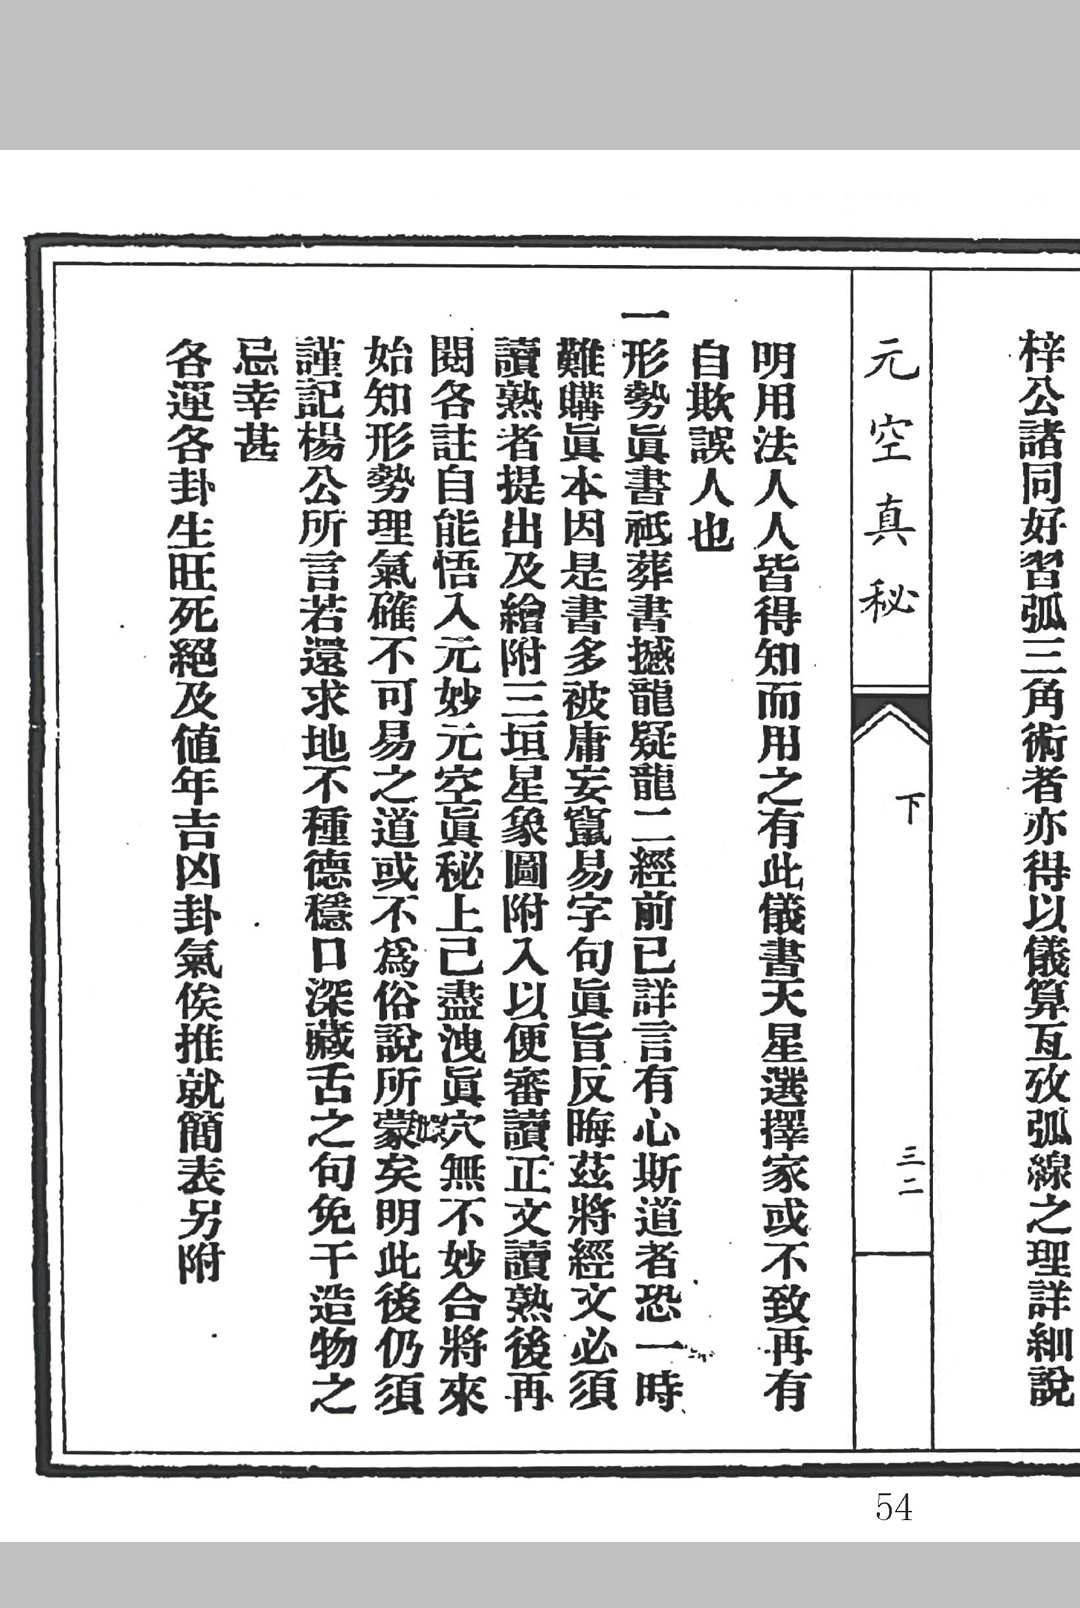 梓公諸同好習弧三角術者亦得以儀算互攷弧線之理詳細說
元空真秘
下
三二
明用法人人皆得知而用之有此儀書天星選擇家或不致再有
自欺誤人也
一形勢眞書祗葬書撼龍疑龍二經前已詳言有心斯道者恐一時
難購眞本因是書多被庸妄竄易字句眞旨反晦茲將經文必須
讀熟者提出及繪附三垣星象圖附入以便審讀正文讀熟後再
閱各註自能悟入元妙元空眞秘上己盡洩眞穴無不妙合將來
始知形勢理氣確不可易之道或不爲俗說所蒙矣明此後仍須
謹記楊公所言若還求地不種德穩口深藏舌之句免干造物之
忌幸甚
各運各卦生旺死絕及値年吉凶卦氣俟推就簡表另附
54